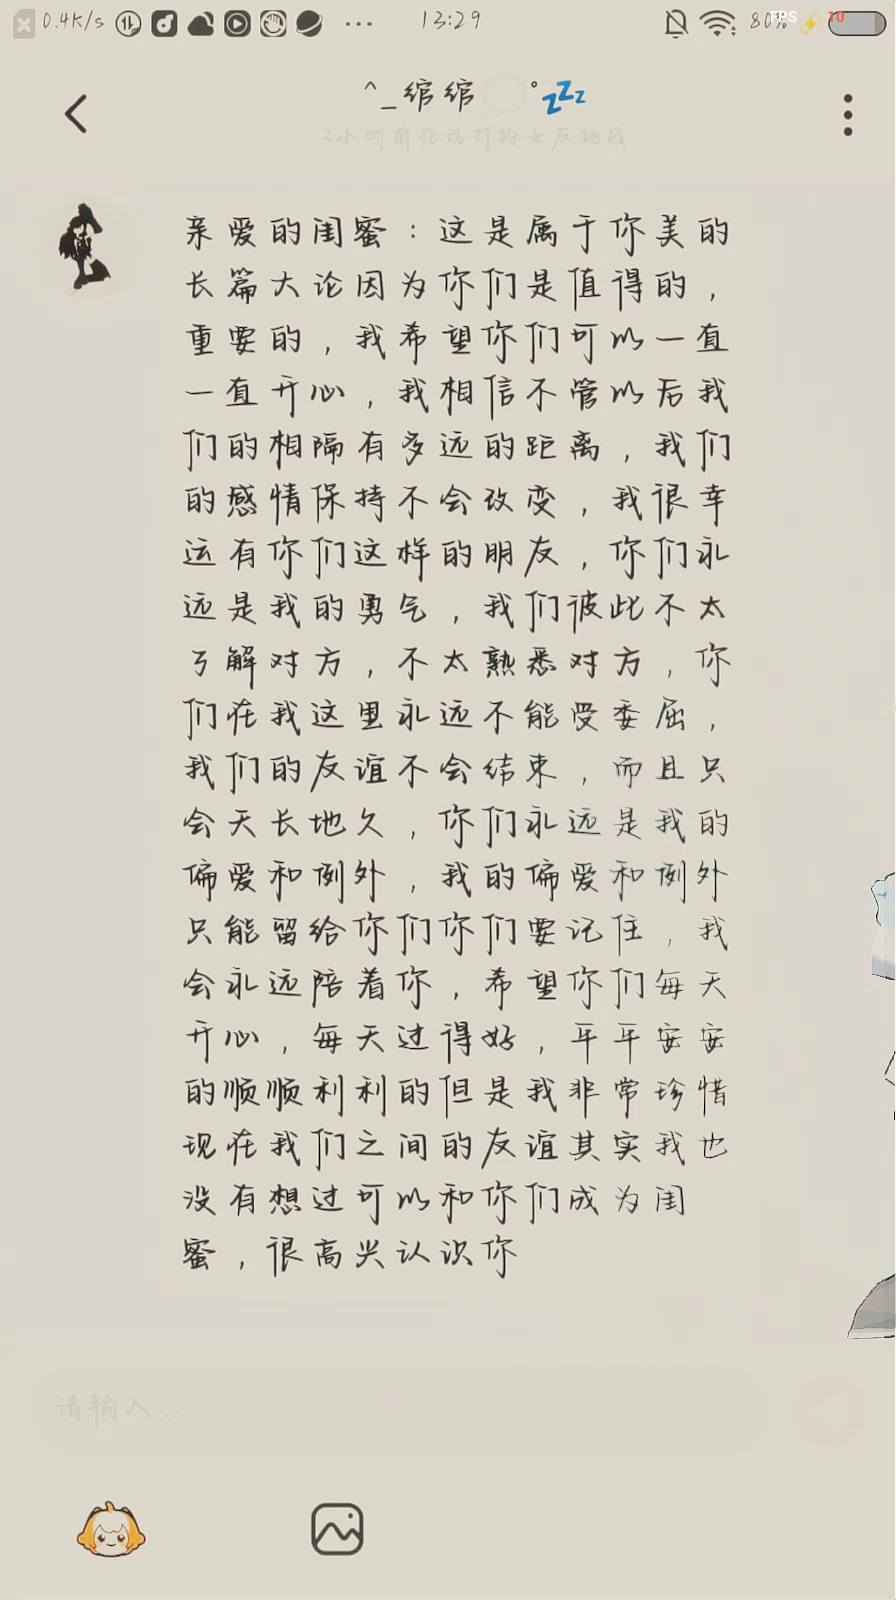 0.4K/s
13:29
80%
FPS
10
^_绾绾 °zzz
2小时前在玩打扮女友挑战
亲爱的闺蜜：这是属于你美的
长篇大论因为你们是值得的，
重要的，我希望你们可以一直
一直开心，我相信不管以后我
们的相隔有多远的距离，我们
的感情保持不会改变，我很幸
运有你们这样的朋友，你们永
远是我的勇气，我们彼此不太
了解对方，不太熟悉对方，你
们在我这里永远不能受委屈，
我们的友谊不会结束，而且只
会天长地久，你们永远是我的
偏爱和例外，我的偏爱和例外
只能留给你们你们要记住，我
会永远陪着你，希望你们每天
开心，每天过得好，平平安安
的顺顺利利的但是我非常珍惜
现在我们之间的友谊其实我也
没有想过可以和你们成为闺
蜜，很高兴认识你
请输入...